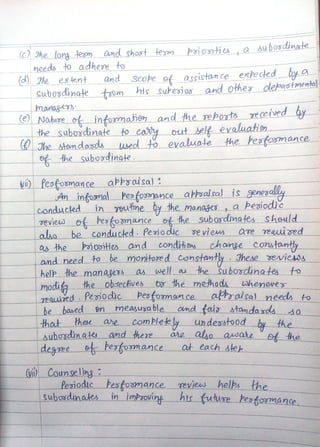 (c) The long term and short term priorities, a subordinate
needs to adhere to
(d) The extent and scope of assistance expected by a
subordinate from his superior and other departmental
managers.
(e) Nature of information and the reports received by
the subordinate to carry out self evaluation
(f) The standards used to evaluate the performance
of the subordinate.
vii) Performance appraisal :
An informal performance appraisal is generally
conducted in routine by the manager, a periodic
review of performance of the subordinates should
also be conducted. Periodic reviews are required
as the priorities and condition change constantly
and need to be monitored constantly. These reviews
help the managers as well as the subordinates to
modify the objectives or the methods whenever
required. Periodic performance appraisal needs to
be based on measurable and fair standards so
that there are completely understood by the
subordinates and there are also aware of the
degree of performance at each step
(viii) Counseling :
Periodic performance review helps the
subordinates in improving his future performance.